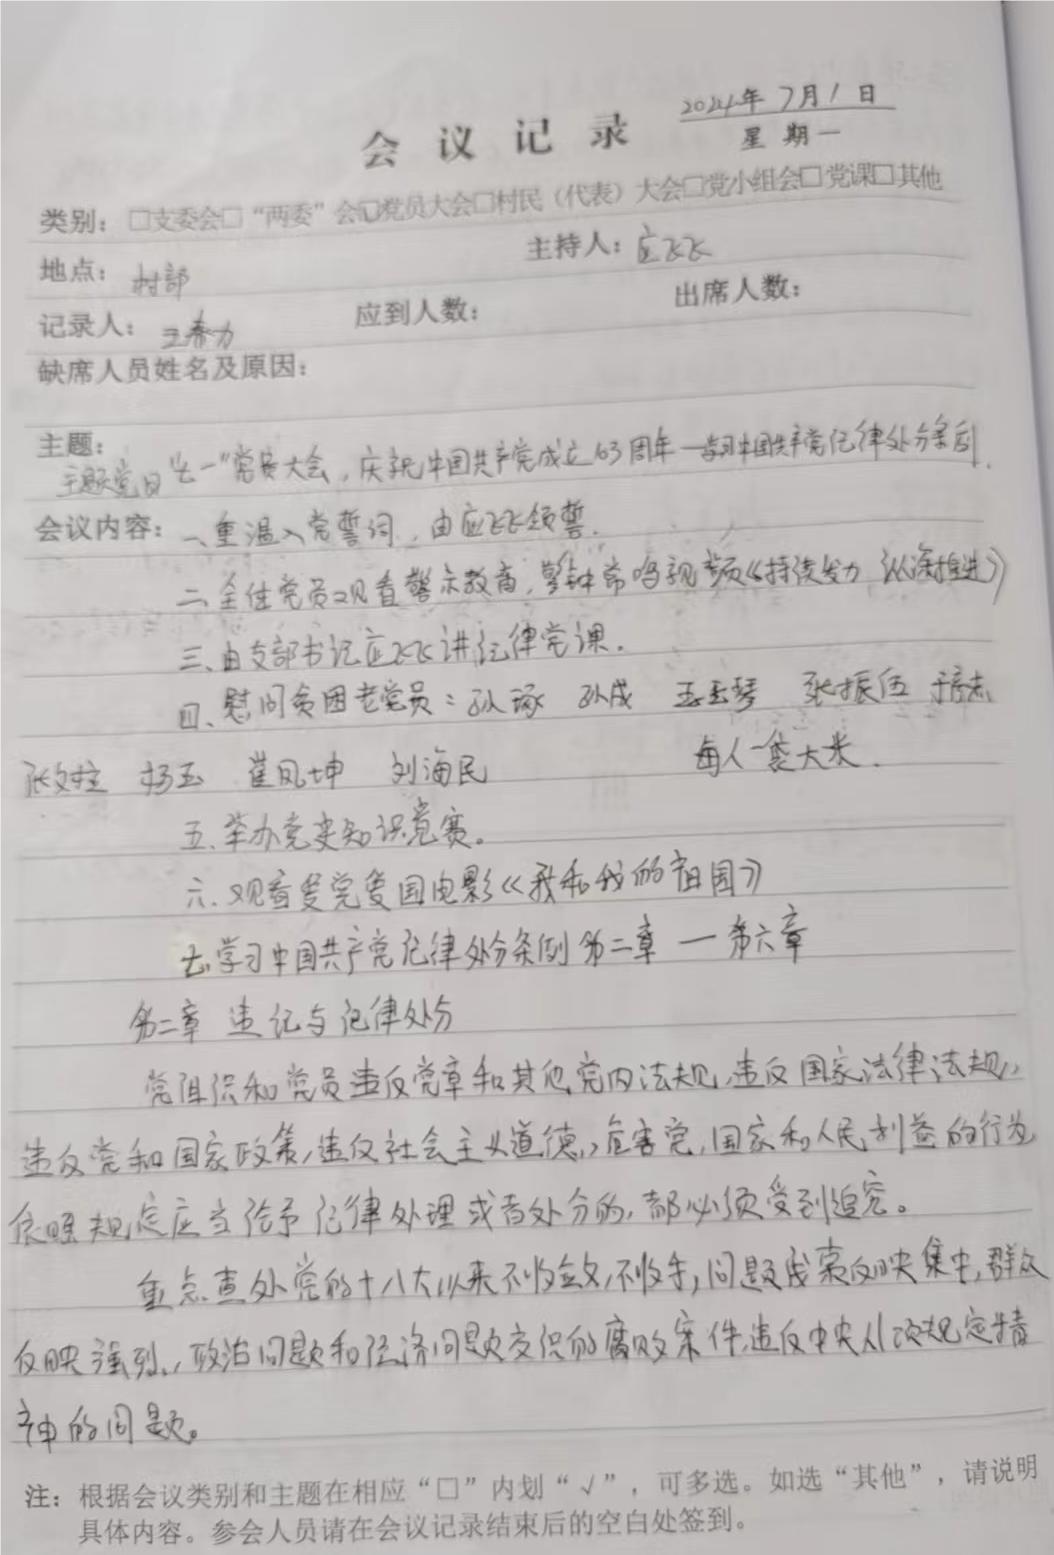 2024年7月1日
会议记录
星期一
类别：□支委会□“两委”会☑党员大会□村民（代表）大会□党小组会□党课□其他
地点：村部 主持人：应飞飞
记录人：王春力 应到人数： 出席人数：
缺席人员姓名及原因：
主题：
主题党日“七一”党员大会，庆祝中国共产党成立103周年一学习中国共产党纪律处分条例.
会议内容：一、重温入党誓词，由应飞飞领誓.
二、全体党员观看警示教育，警钟常鸣视频《持续发力 纵深推进》
三、由支部书记应飞飞讲纪律党课.
四、慰问贫困老党员：孙琢 孙成 王玉琴 张振伍
张文柱 杨玉 崔凤坤 刘海民 每人一袋大米.
五、举办党史知识竞赛。
六、观看爱党爱国电影《我和我的祖国》
七、学习中国共产党纪律处分条例第二章一第六章
第二章 违纪与纪律处分
党组织和党员违反党章和其他党内法规，违反国家法律法规，
违反党和国家政策，违反社会主义道德，危害党，国家和人民利益的行为
依照规定应当给予纪律处理或者处分的，都必须受到追究。
重点查处党的十八大以来不收敛，不收手，问题线索反映集中，群众
反映强烈，政治问题和经济问题交织的腐败案件，违反中央八项规定精
神的问题。
注：根据会议类别和主题在相应“□”内划“√”，可多选。如选“其他”，请说明
具体内容。参会人员请在会议记录结束后的空白处签到。